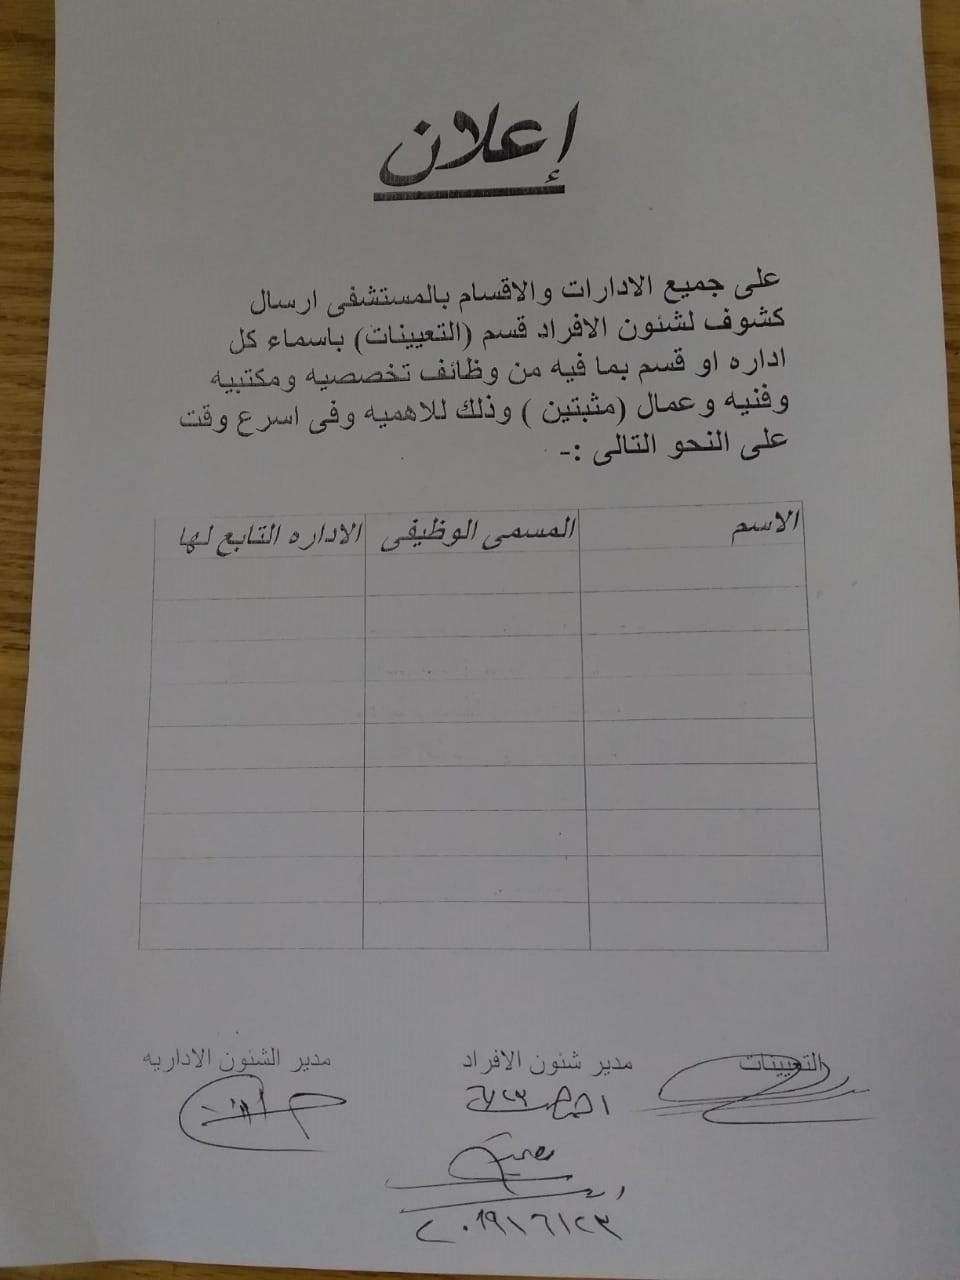 إعلان
على جميع الادارات والاقسام بالمستشفى ارسال
كشوف لشئون الافراد قسم (التعيينات) باسماء كل
اداره او قسم بما فيه من وظائف تخصصيه ومكتبيه
وفنيه وعمال (مثبتين ) وذلك للاهميه وفى اسرع وقت
على النحو التالى :-
الاسم المسمى الوظيفى الاداره التابع لها
التعيينات مدير شئون الافراد مدير الشئون الاداريه
٢٠١٩/٦/٢٣